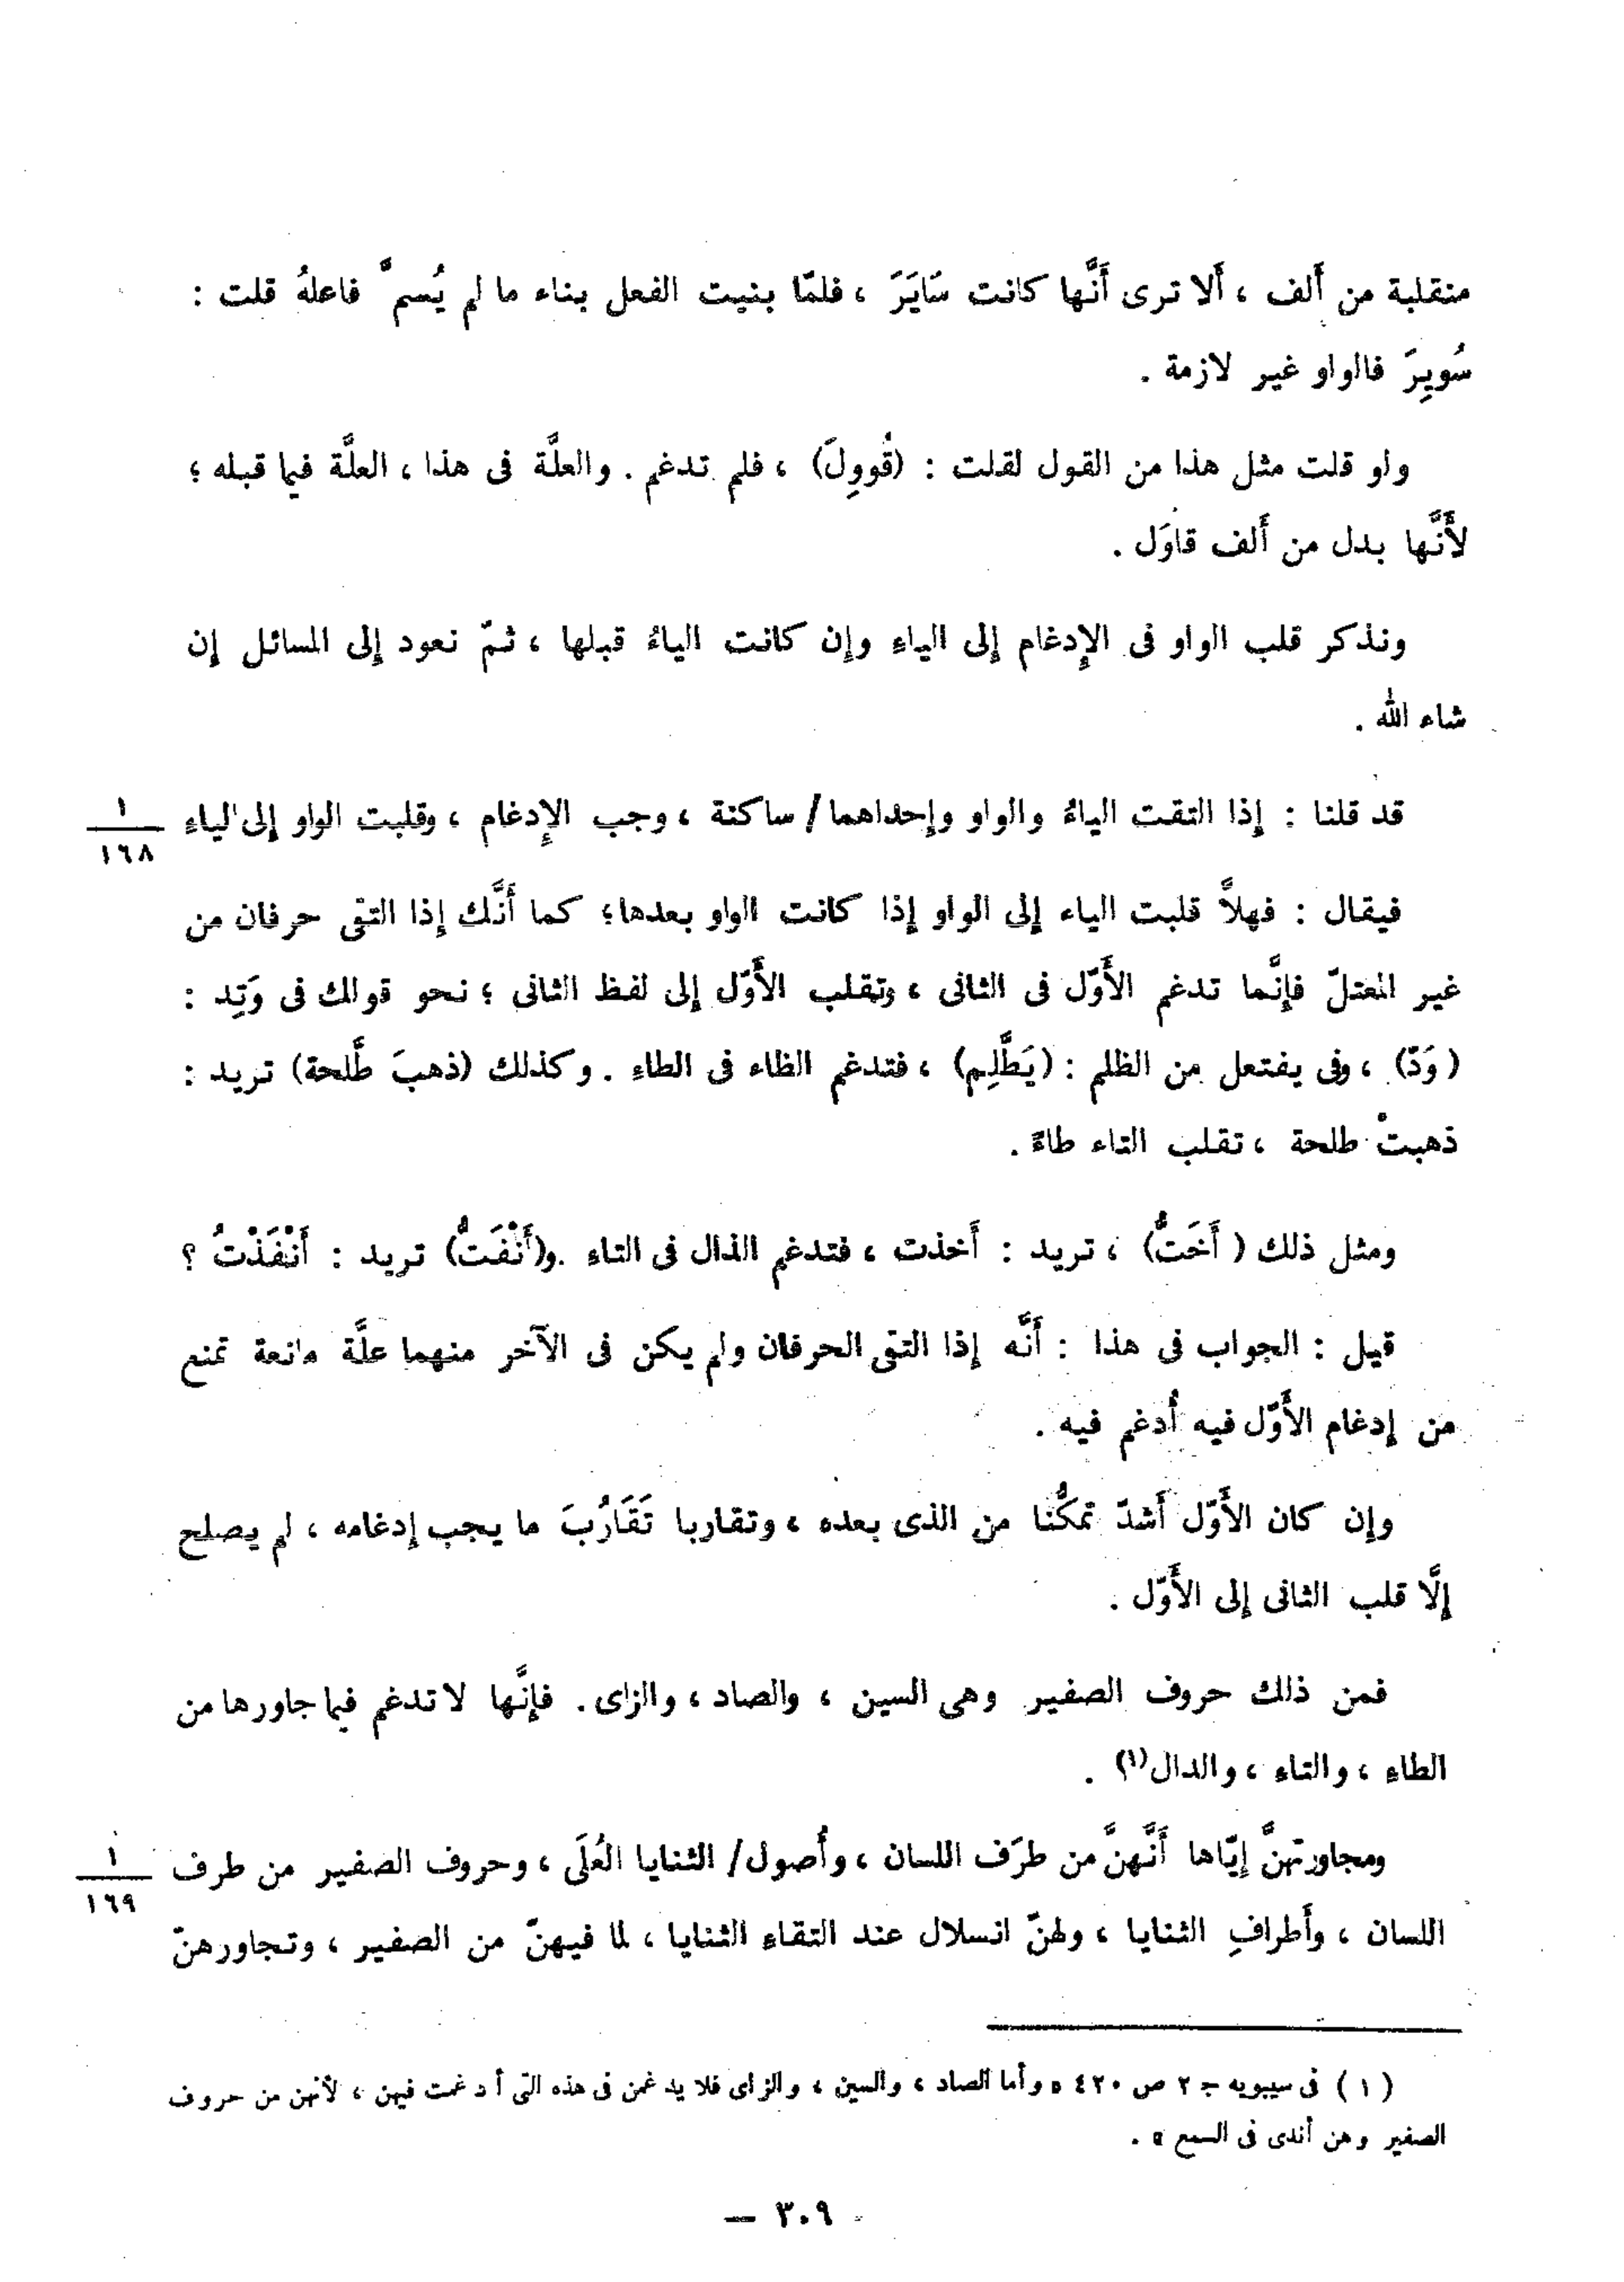 منقلبة من أَلف ، أَلا ترى أَنَّها كانت سَايَرَ ، فلمّا بنيت الفعل بناء ما لم يُسمَّ فاعلهُ قلت :
سُويِرَ فالواو غير لازمة .
ولو قلت مثل هذا من القول لقلت : (قُووِلَ) ، فلم تدغم . والعلَّة فى هذا ، العلَّة فيما قبله ؛
لأَنَّها بدل من أَلف قاوَل .
ونذكر قلب الواو فى الإِدغام إِلى الياءِ وإِن كانت الياءُ قبلها ، ثمّ نعود إِلى المسائل إِن
شاء الله .
قد قلنا : إِذا التقت الياءُ والواو وإِحداهما / ساكنة ، وجب الإِدغام ، وقلبت الواو إِلى الياءِ
١
١٦٨
فيقال : فهلاَّ قلبت الياء إِلى الواو إِذا كانت الواو بعدها؛ كما أَنَّك إِذا التقى حرفان من
غير المعتلّ فإِنَّما تدغم الأَوّل فى الثانى ، وتقلب الأَوّل إِلى لفظ الثانى ؛ نحو قولك فى وَتِد :
( وَدّ) ، وفى يفتعل من الظلم : (يَطَّلِم) ، فتدغم الظاء فى الطاءِ . وكذلك (ذهبَ طَّلحة) تريد :
ذهبتْ طلحة ، تقلب التاء طاءً .
ومثل ذلك ( أَخَتُّ) ، تريد : أَخذت ، فتدغم الذال فى التاءِ . و(أَنْفَتُّ) تريد : أَنْفَذْتُ ؟
قيل : الجواب فى هذا : أَنَّه إِذا التقى الحرفان ولم يكن فى الآخر منهما علَّة مانعة تمنع
من إِدغام الأَوّل فيه أُدغم فيه .
وإِن كان الأَوّل أَشدّ تمكُّنا من الذى بعده ، وتقاربا تَقَارُبَ ما يجب إِدغامه ، لم يصلح
إِلَّا قلب الثانى إِلى الأَوّل .
فمن ذلك حروف الصفير وهى السين ، والصاد ، والزاى . فإِنَّها لا تدغم فيما جاورها من
الطاءِ ، والتاءِ ، والدال(١) .
ومجاورتهنَّ إِيّاها أَنَّهنَّ من طرَف اللسان ، وأُصول / الثنايا العُلَى ، وحروف الصفير من طرف
١
١٦٩
اللسان ، وأَطرافِ الثنايا ، ولهنّ انسلال عند التقاءِ الثنايا ، لما فيهنّ من الصفير ، وتجاورهنّ
(١) فى سيبويه ج ٢ ص ٤٢٠ « وأما الصاد ، والسين ، والزاى فلا يدغمن فى هذه التى أدغمت فيهن ، لأنهن من حروف
الصفير وهن أندى فى السمع » .
– ٣٠٩ –